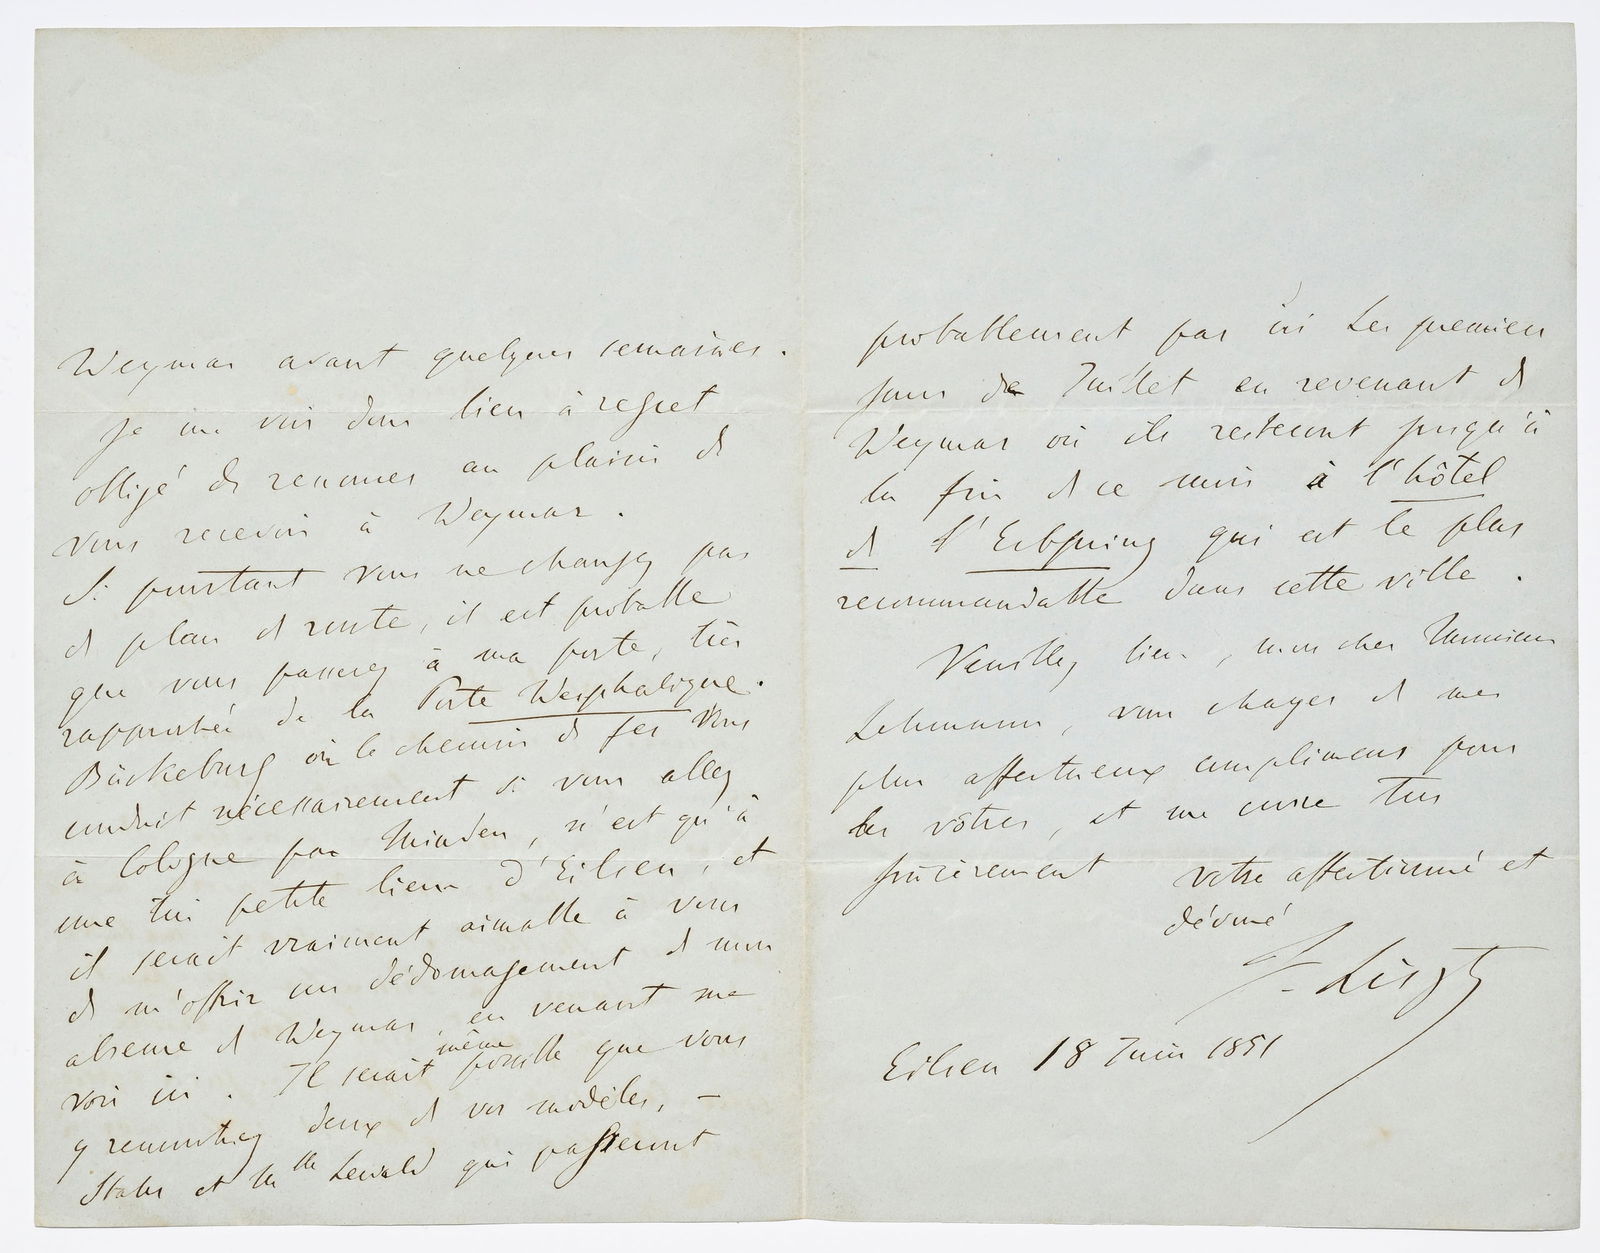 Weymar avant quelques semaines.
Je me vois donc bien à regret
obligé de renoncer au plaisir de
vous recevoir à Weymar.
Si pourtant vous ne changez pas
de plan de route, il est probable
que vous passerez à ma porte, très
rapprochée de la Porte Wesphalique.
Bückeburg où le chemin de fer vous
conduit nécessairement si vous allez
à Cologne par Minden, n'est qu'à
une très petite lieue d'Eilsen, et
il serait vraiment aimable à vous
de m'offrir un dédomagement de mon
absence de Weymar, en venant me
voir ici. Il serait même possible que vous
y rencontriez deux de vos modèles, –
Stahr et Mlle Lewald qui passeront
probablement par ici les premiers
jours de Juillet en revenant de
Weymar où ils resteront jusqu'à
la fin de ce mois à l'hôtel
de l'Erbprinz qui est le plus
recommandable dans cette ville.
Veuillez bien, mon cher Monsieur
Lehmann, vous charger de mes
plus affectueux complimens pour
les vôtres, et me croire très
sincèrement votre affectionné et
dévoué
F. Liszt
Eilsen 18 Juin 1851